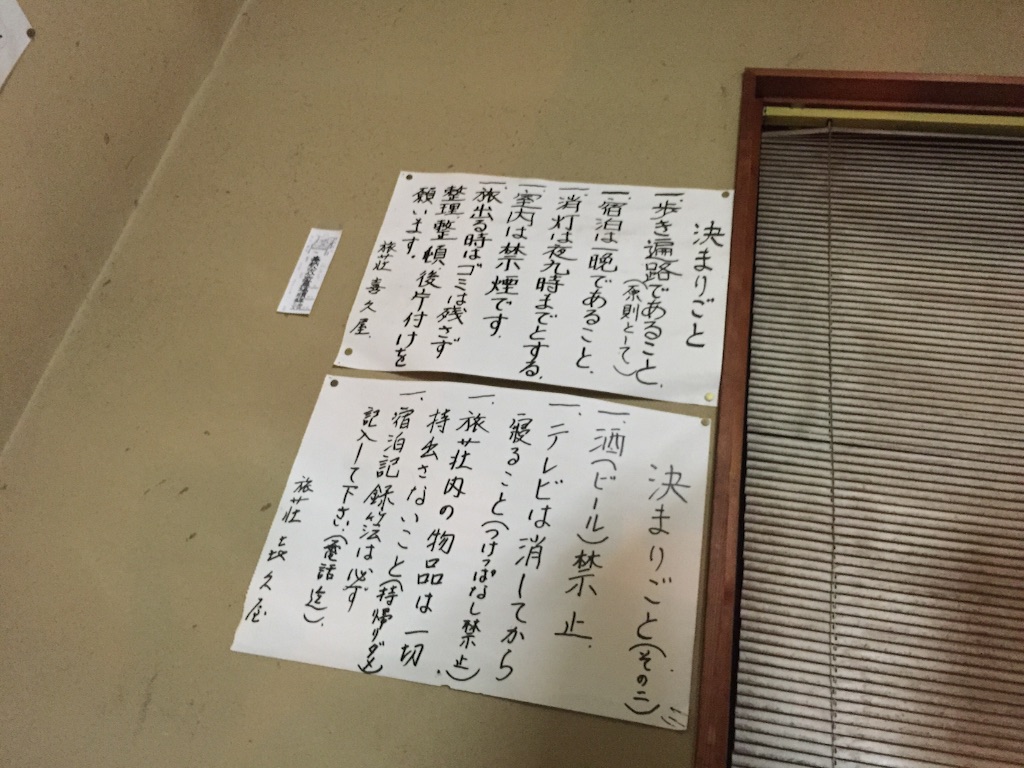 決まりごと
一、歩き遍路であること、
一、宿泊は一晩であること、
(原則として)
一、消灯は夜九時までとする、
一、室内は禁煙です、
一、旅出る時はゴミは残さず
整理整頓後片付けを
願います。
旅荘 喜久屋
決まりごと(その二)
一、酒(ビール)禁止、
一、テレビは消してから
寝ること(つけっぱなし禁止)
一、旅荘内の物品は一切
持出さないこと(持帰りダメ)
一、宿泊記録は必ず
記入して下さい(電話迄)、
旅荘 喜久屋